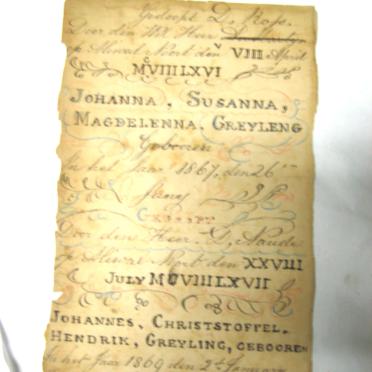 Gedoopt D. Ross.
Door den WE Heer
op Aliwal Nort den VIII April
MVIIILXVI
JOHANNA, SUSANNA,
MAGDELENNA, GREYLENG
Gebooren
In het Jaar 1867, den 26
GEDOOPT
Door den Heer. D, Naude
op Aliwal Nort den XXVIII
JULY MVIIILXVII
JOHANNES, CHRISTSTOFFEL.
HENDRIK, GREYLING, GEBOOREN
In het Jaar 1869 den 2 January